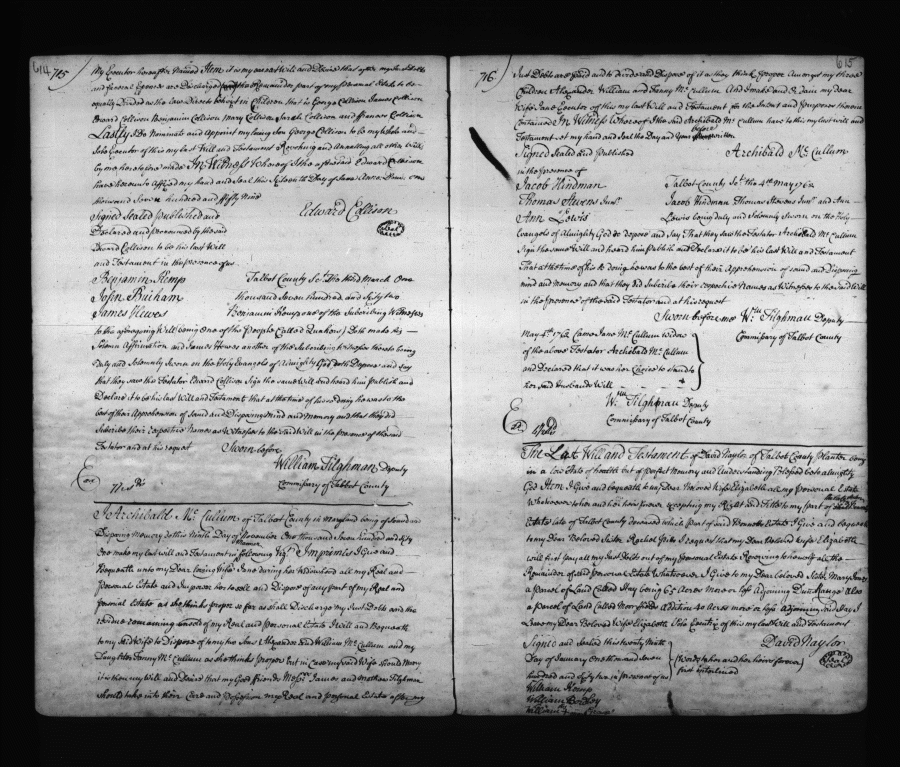 614
715
My Executor hereafter Named Item it is my Will and Desire that after my Just Debts
and funeral Expences are Discharged the Remainder part of my Personal Estate to be
equally Divided as the Law Directs between Children that is George Collison James Collison
Edward Collison Benjamin Collison Mary Collison Sarah Collison and Frances Collison
Lastly I do Nominate and Appoint my loving Son George Collison to be my whole and
Sole Executor of this my last Will and Testament Revoking and Annulling all other Wills
by me heretofore made In Witness whereof I the aforesaid Edward Collison
have hereunto Affixed my hand and Seal this Sixteenth Day of June Anno Domini one
thousand Seven hundred and fifty
Signed Sealed published and
Edward Collison
Declared and pronounced by the said
Seal
Edward Collison to be his last Will
and Testament in the presence of us
Benjamin Kemp
Talbot County Sc. The third March One
John Bircham
thousand Seven Hundred and Sixty two
James Hewes
Benjamin Kemp one of the Subscribing Witnesses
to the aforegoing Will being One of the People Called Quakers Doth make his
Solemn Affirmation and James Hewes another of the Subscribing Witnesses thereto being
Duly and Solemnly Sworn on the Holy Evangels of Almighty God doth Depose and say
that they saw the Testator Edward Collison Sign the same Will and heard him Publish and
Declare it to be his last Will and Testament that at the time of his so doing he was to the
best of their Apprehension of Sound and Disposing mind and memory and that they did
Subscribe their respective Names as Witnesses to the said Will in the presence of the said
Testator and at his request
Sworn before
William Tilghman Deputy
Commissary of Talbot County
I Archibald Mc Cullum of Talbot County in Maryland being of Sound and
Disposing Memory do this Ninth Day of November One thousand Seven hundred and fifty
One make my last will and Testament in following manner Viz. Imprimis I Give and
Bequeath unto my Dear loving Wife Jane during her Widowhood all my Real and
Personal Estate and Impower her to sell and Dispose of any part of my Real and
Personal Estate as she thinks proper so far as shall Discharge my Just Debts and the
residue remaining of my Real and Personal Estate I will and Bequeath
to my said Wife to Dispose of to my two Sons Alexander and William Mc Cullum and my
Daughter Fanny Mc Cullum as she thinks proper but in case my said Wife should Marry
it is then my Will and Desire that my Good friends Messrs James and Matthew Tilghman
should take into their Care and Possession my Real and personal Estate after my
615
716
Just Debts are paid and to divide and Dispose of it as they think Proper Amongst my three
Children Alexander William and Fanny Mc Cullum And I make and Ordain my dear
Wife Jane Executor of this my last Will and Testament for the Intent and Purposes therein
Contained In Witness Whereof I the said Archibald Mc Cullum have to this my last will and
Testament set my hand and Seal the Day and Year before written
Signed Sealed and Published
Archibald Mc Cullum
in the presence of
Jacob Hindman
Talbot County Sct. the 4th May 1762
Thomas Stevens Junr
Jacob Hindman Thomas Stevens Junr and Ann
Ann Lewis
Lewis being Duly and Solemnly Sworn on the Holy
Evangels of Almighty God do depose and say That they saw the Testator Archibald Mc Cullum
Sign the same Will and heard him Publish and Declare it to be his last Will and Testament
That at the time of his so doing he was to the best of their Apprehension of sound and Disposing
mind and memory and that they did Subscribe their respective Names as Witnesses to the said Will
in the presence of the said Testator and at his request
Sworn before me Wm Tilghman Deputy
Commissary of Talbot County
May 4th 1762 Came Jane Mc Cullum widow
of the above Testator Archibald Mc Cullum
and Declared that it was her Choice to Stand to
her said Husbands Will
Wm Tilghman Deputy
Commissary of Talbot County
The Last Will and Testament of David Naylor of Talbot County Planter being
in a low State of health but of perfect Memory and Understanding Blessed be to almighty
God Item I Give and bequeath to my Dear Beloved Wife Elizabeth all my Personal Estate
Whatsoever to her and her heirs forever Excepting my Right and Title to my part of
Estate late of Talbot County deceased which part of said Estate I Give and bequeath
to my Dear Beloved Sister Rachel Item I request that my Dear Beloved Wife Elizabeth
will first pay all my Just Debts out of my Personal Estate Reserving to herself all the
Remainder of said personal Estate Whatsoever I Give to my Dear beloved Sister Mary
a parcel of Land Called Hay being 60 Acres more or less Adjoining Range Also
a parcel of Land Called Addition 40 Acres more or less Adjoining said Hay I
Leave my Dear Beloved Wife Elizabeth Sole Executrix of this my last Will and Testament
Signed and Sealed this twenty Ninth
David Naylor
Day of January One thousand Seven
(Words to her and her heirs forever
Seal
hundred and Sixty two in presence of us
first interlined
William Kemp
William
William